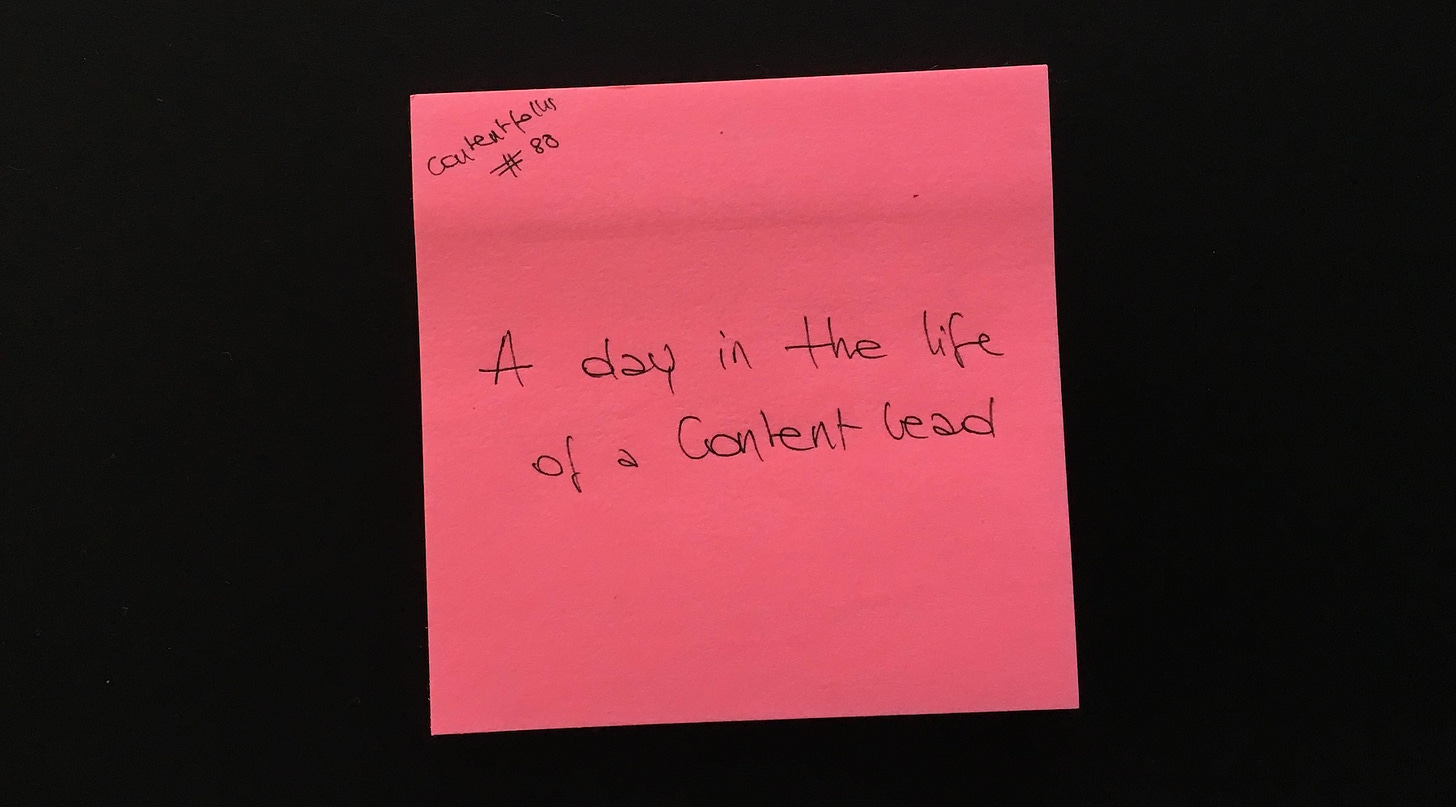 Contentfolks
#80
A day in the life
of a Content Lead